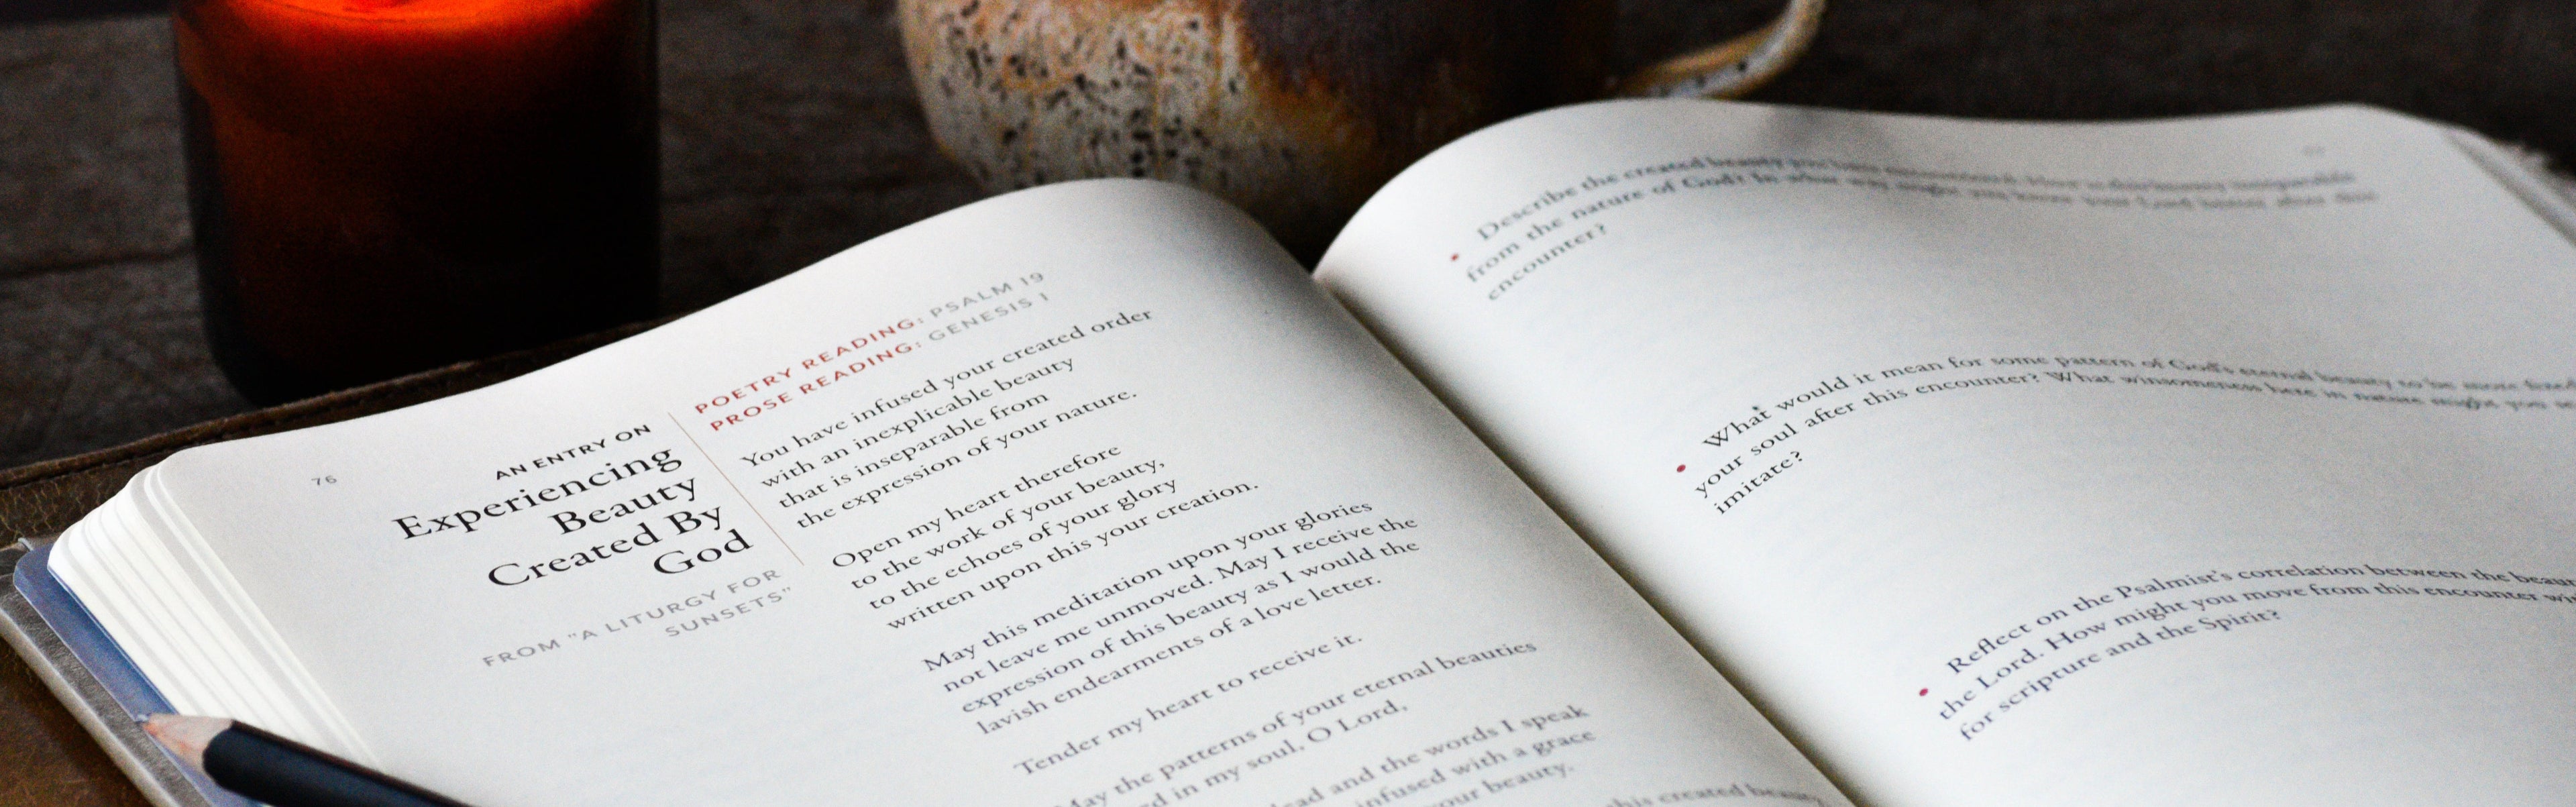 76
AN ENTRY ON
Experiencing
Beauty
Created By
God
FROM "A LITURGY FOR
SUNSETS"
POETRY READING: PSALM 19
PROSE READING: GENESIS 1
You have infused your created order
with an inexplicable beauty
that is inseparable from
the expression of your nature.
Open my heart therefore
to the work of your beauty,
to the echoes of your glory
written upon this your creation.
May this meditation upon your glories
not leave me unmoved. May I receive the
expression of this beauty as I would the
lavish endearments of a love letter.
Tender my heart to receive it.
May the patterns of your eternal beauties
in my soul, O Lord,
and the words I speak
infused with a grace
your beauty.
this created beauty
Describe the created beauty you have encountered. How is this beauty inseparable
from the nature of God? In what way might you know your Lord better after this
encounter?
What would it mean for some pattern of God's eternal beauty to be more fixed
your soul after this encounter? What winsomeness here in nature might you
imitate?
Reflect on the Psalmist's correlation between the
the Lord. How might you move from this encounter
for scripture and the Spirit?